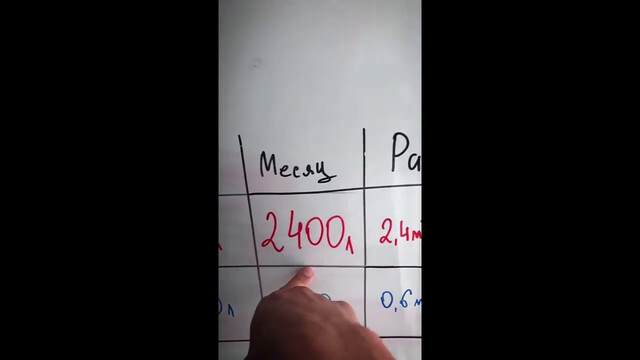 Месяц
Ра
л 2400л 2,4м
0л 0,6м